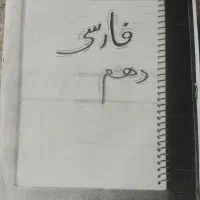 فارسی
دهم